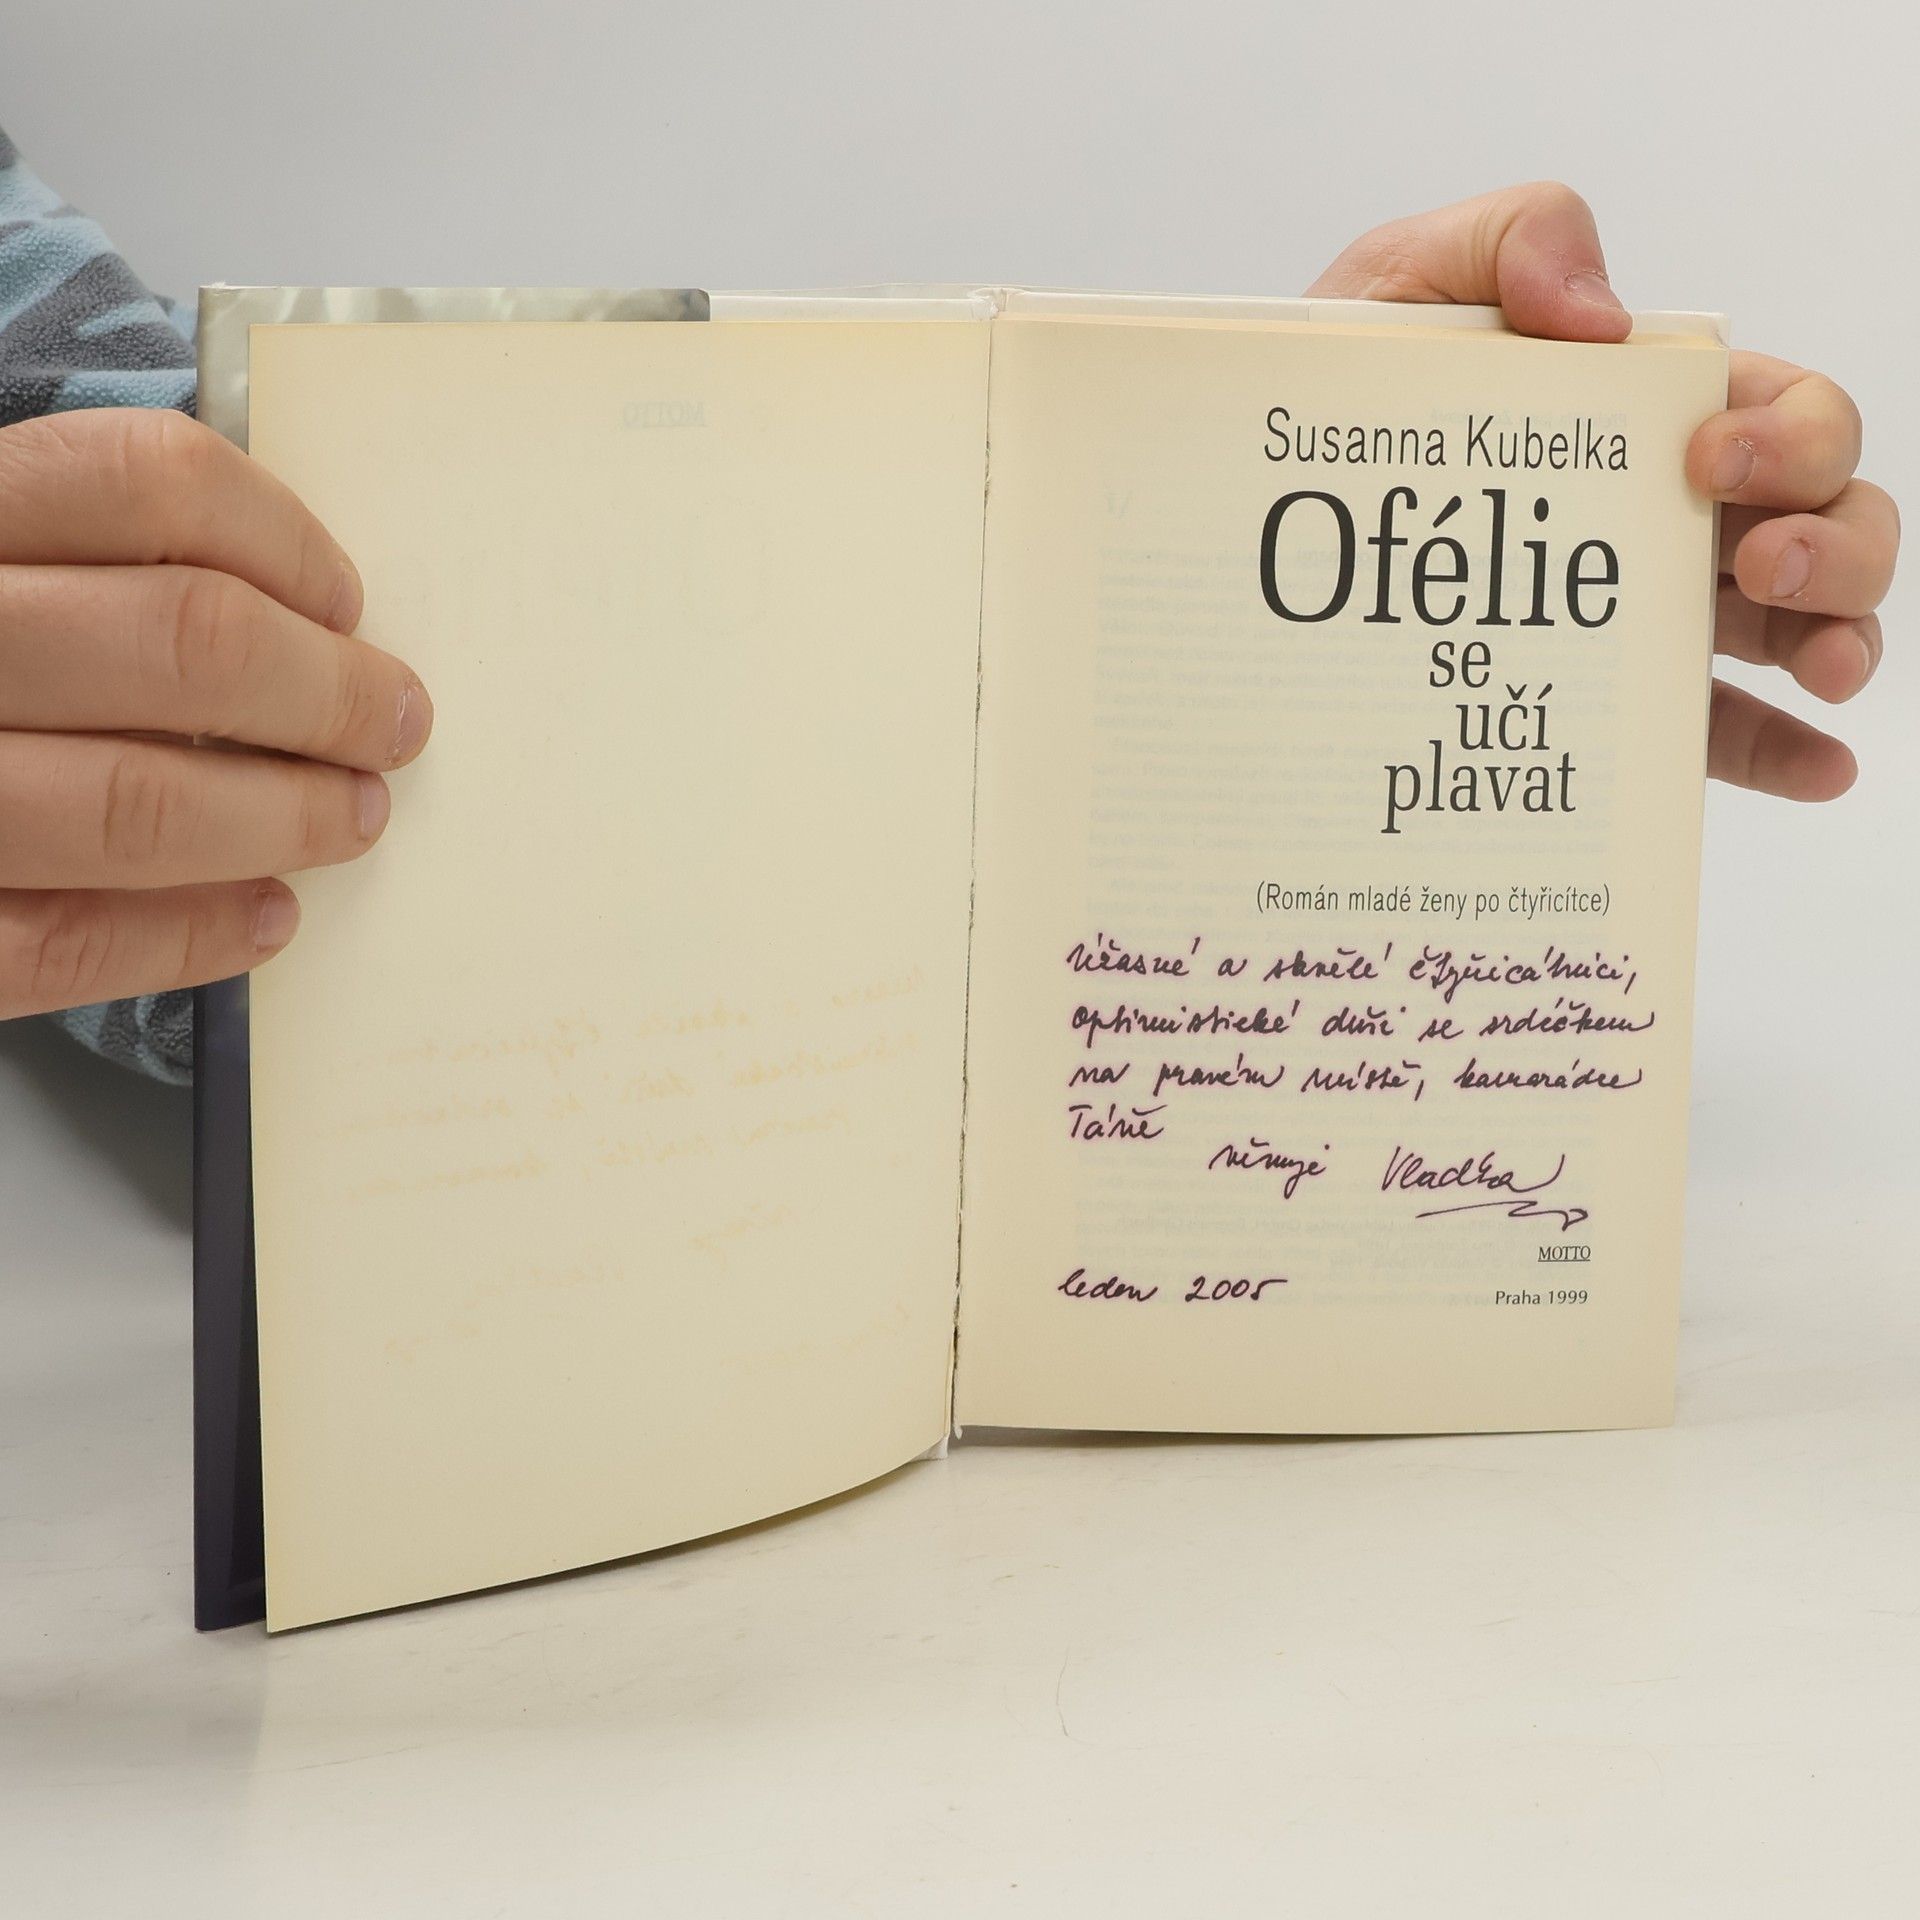 Susanna Kubelka
Ofélie
se
učí
plavat
(Román mladé ženy po čtyřicítce)
Úžasné a skvělé čtyřicátnici,
optimistické duši se srdéčkem
na pravém místě, kamarádce
Táně
věnuje Vlaďka
MOTTO
leden 2005
Praha 1999
MOTTO